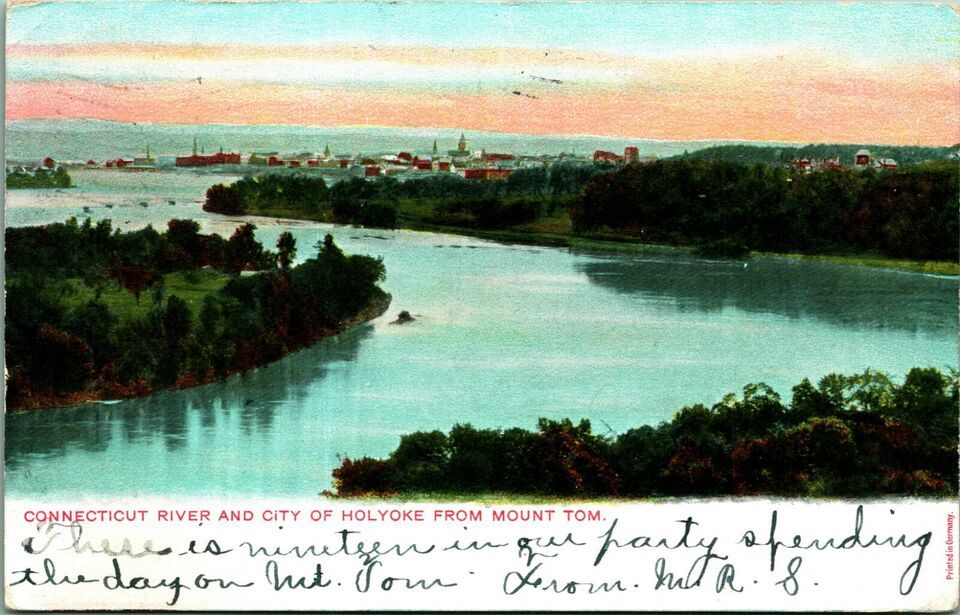 CONNECTICUT RIVER AND CITY OF HOLYOKE FROM MOUNT TOM.
There is nineteen in our party spending
the day on Mt. Tom. From. M. R. S.
Printed in Germany.